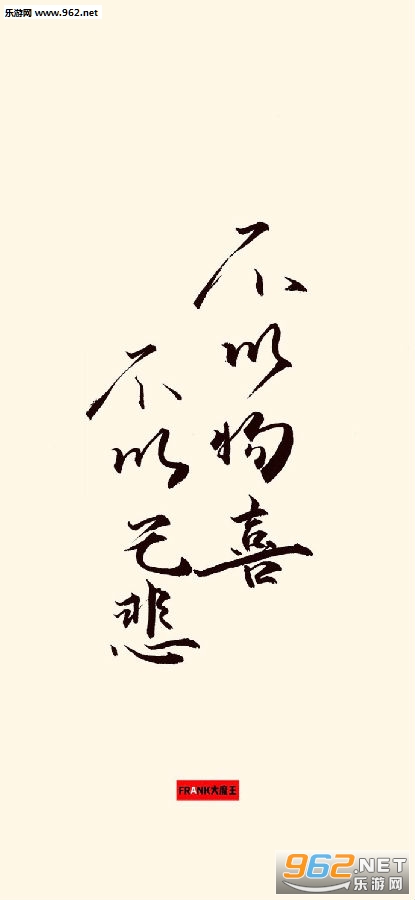 乐游网 www.962.net
不以物喜
不以己悲
FRANK大魔王
962.NET
乐游网